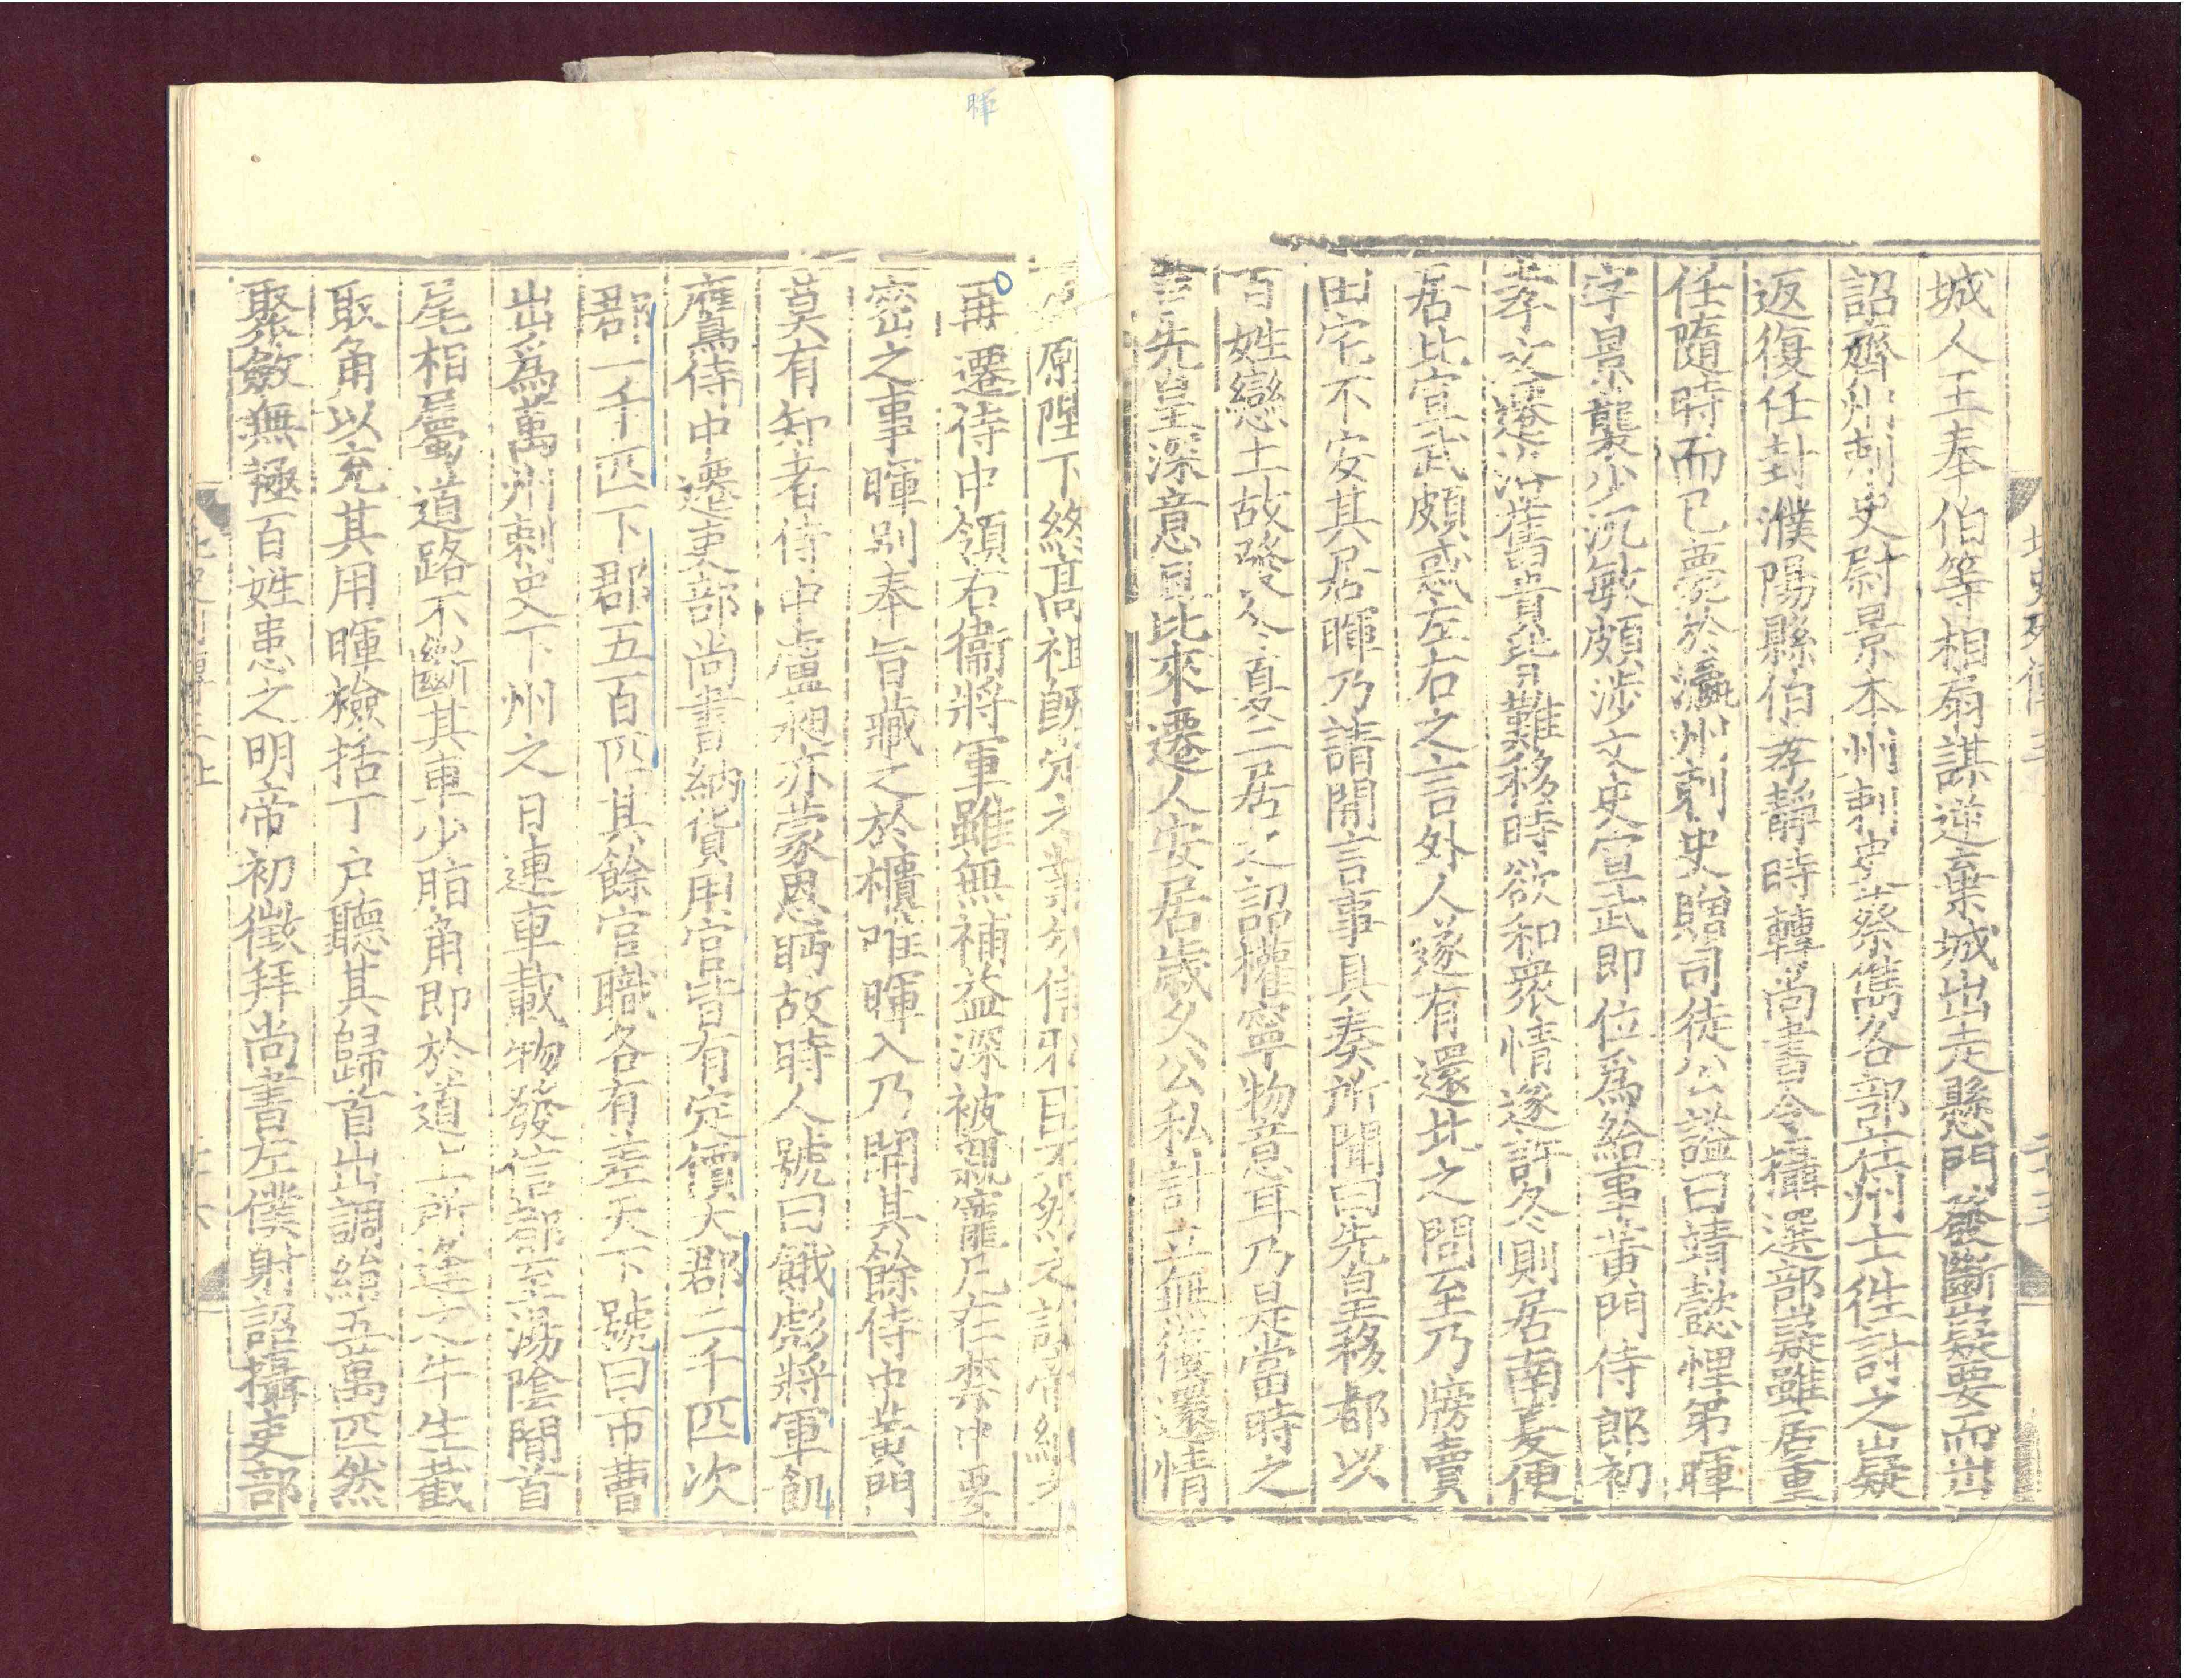 城人王奉伯等相扇謀逆棄城出走懸門發斷嶷要而出
詔齊州刺史尉景本州刺史蔡儁各部在州士往討之嶷
返復任封濮陽縣伯孝靜時轉尚書令攝選部嶷雖居重
任隨時而已薨於瀛州刺史贈司徒公謚曰靖懿悝弟暉
字景襲少沉敏頗涉文史宣武即位爲給事黃門侍郎初
孝文遷洛舊貴皆難移時欲和衆情遂許冬則居南夏便
居北宣武頗惑左右之言外人遂有還北之問至乃牓賣
田宅不安其居暉乃請閒言事具奏所聞曰先皇移都以
百姓戀土故發冬夏二居之詔權寧物意耳乃是當時之
言先皇深意且比來遷人安居歲久公私計立無復還情
原陛下終高祖旣定之業勿信邪臣不然之說帝納之
再遷侍中領右衞將軍雖無補益深被親寵凡在禁中要
密之事暉别奉旨藏之於櫃唯暉入乃開其餘侍中黃門
莫有知者侍中盧昶亦蒙恩眄故時人號曰餓彪將軍飢
鷹侍中遷吏部尚書納貨用官皆有定價大郡二千匹次
郡一千匹下郡五百匹其餘官職各有差天下號曰市曹
出爲萬州刺史下州之日連車載物發信都至湯陰閒首
尾相屬道路不斷其車少脂角即於道上所逢之牛生截
取角以充其用暉檢括丁戶聽其歸首出調絹五萬匹然
聚斂無極百姓患之明帝初徵拜尚書左僕射詔攝吏部
北史列傳三
二十三
暉